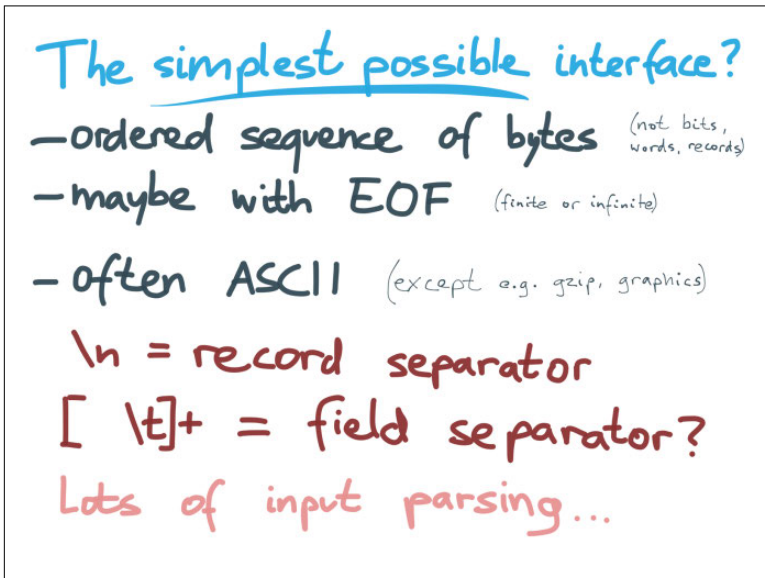 The simplest possible interface?
— ordered sequence of bytes (not bits,
words, records)
— maybe with EOF (finite or infinite)
— often ASCII (except e.g. gzip, graphics)
\n = record separator
[ \t]+ = field separator?
Lots of input parsing...